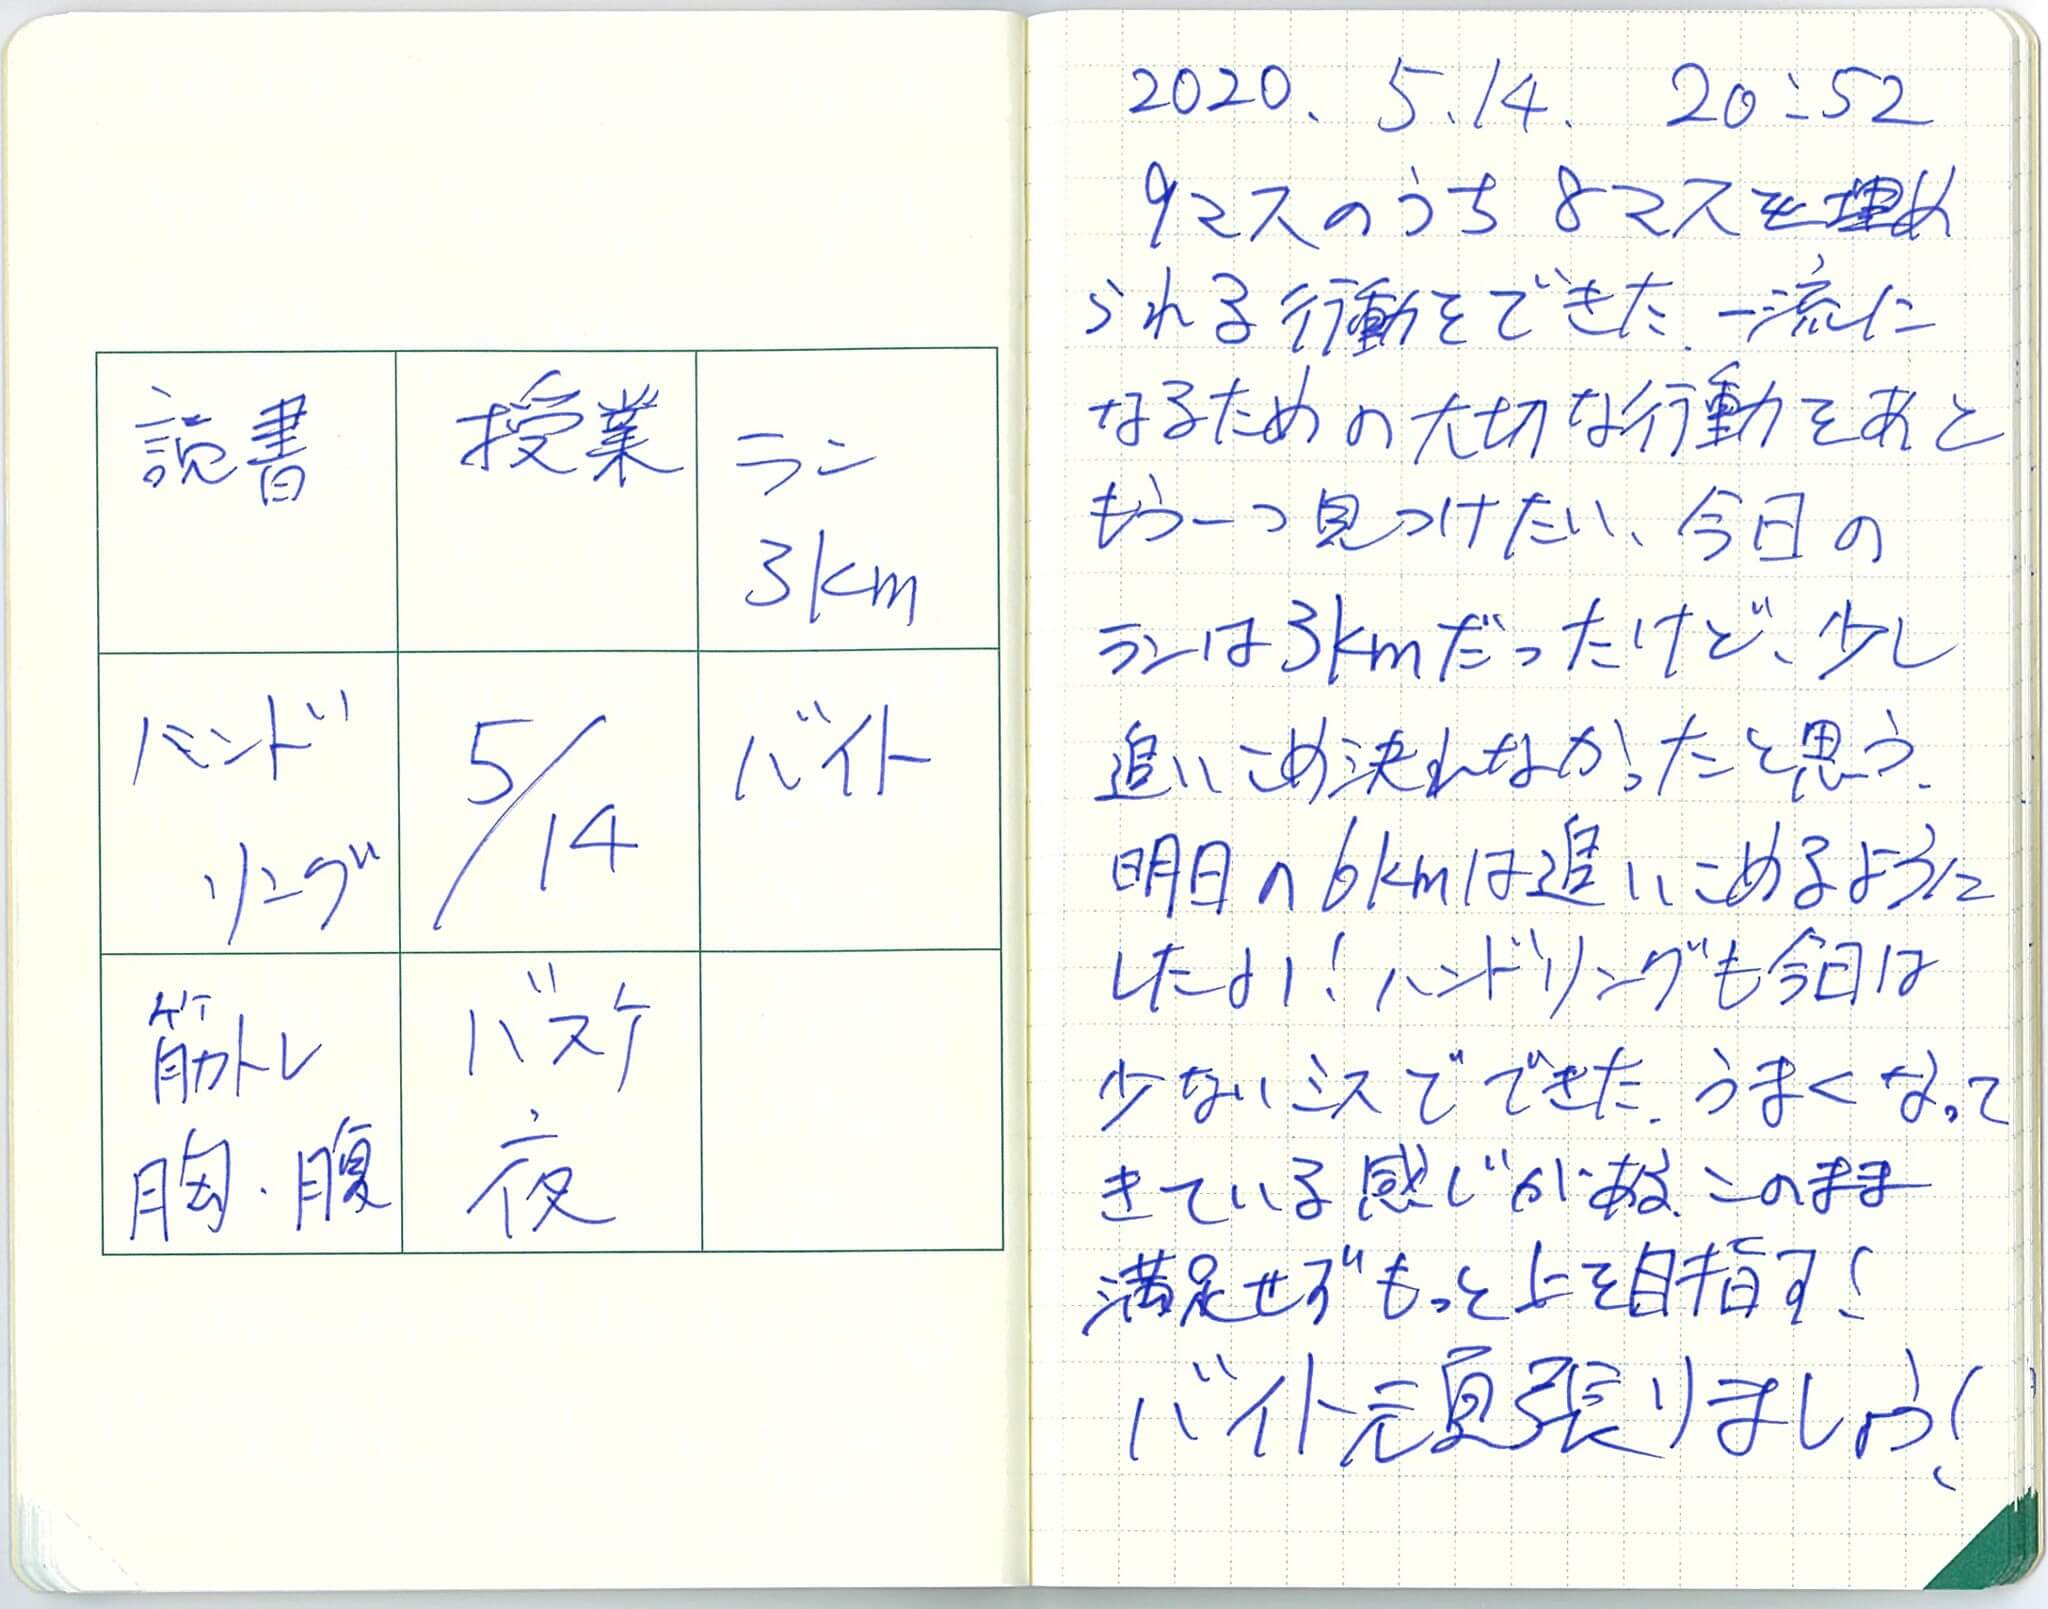 読書
授業
ラン
3km
ハンド
リング
5/14
バイト
筋トレ
胸・腹
バスケ
夜
2020. 5.14. 20:52
9マスのうち8マスを埋め
られる行動をできた.一流に
なるための大切な行動をあと
もう一つ見つけたい、今日の
ランは3kmだったけど、少し
追いこめ決れなかったと思う.
明日の6kmは追いこめるように
したよい!ハンドリングも今日は
少ないミスでできた.うまくなって
きている感じがある.このまま
満足せずもっと上を目指す!
バイト頑張りましょう!